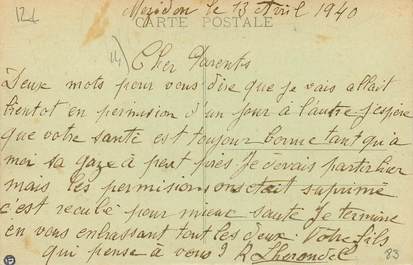 Mezidon le 13 Avril 1940
CARTE POSTALE
Cher Parents
Deux mots pour vous dire que je vais allait
bientot en permision d'un jour à l'autre j'espère
que votre santé est toujour bonne tant qu'a
moi sa gaze à peut près Je devais partir hier
mais les permissions onctait suprimé
c'est reculé pour mieux sauté Je termine
en vous enbrassant tout les deux Votre fils
qui pense à vous
83